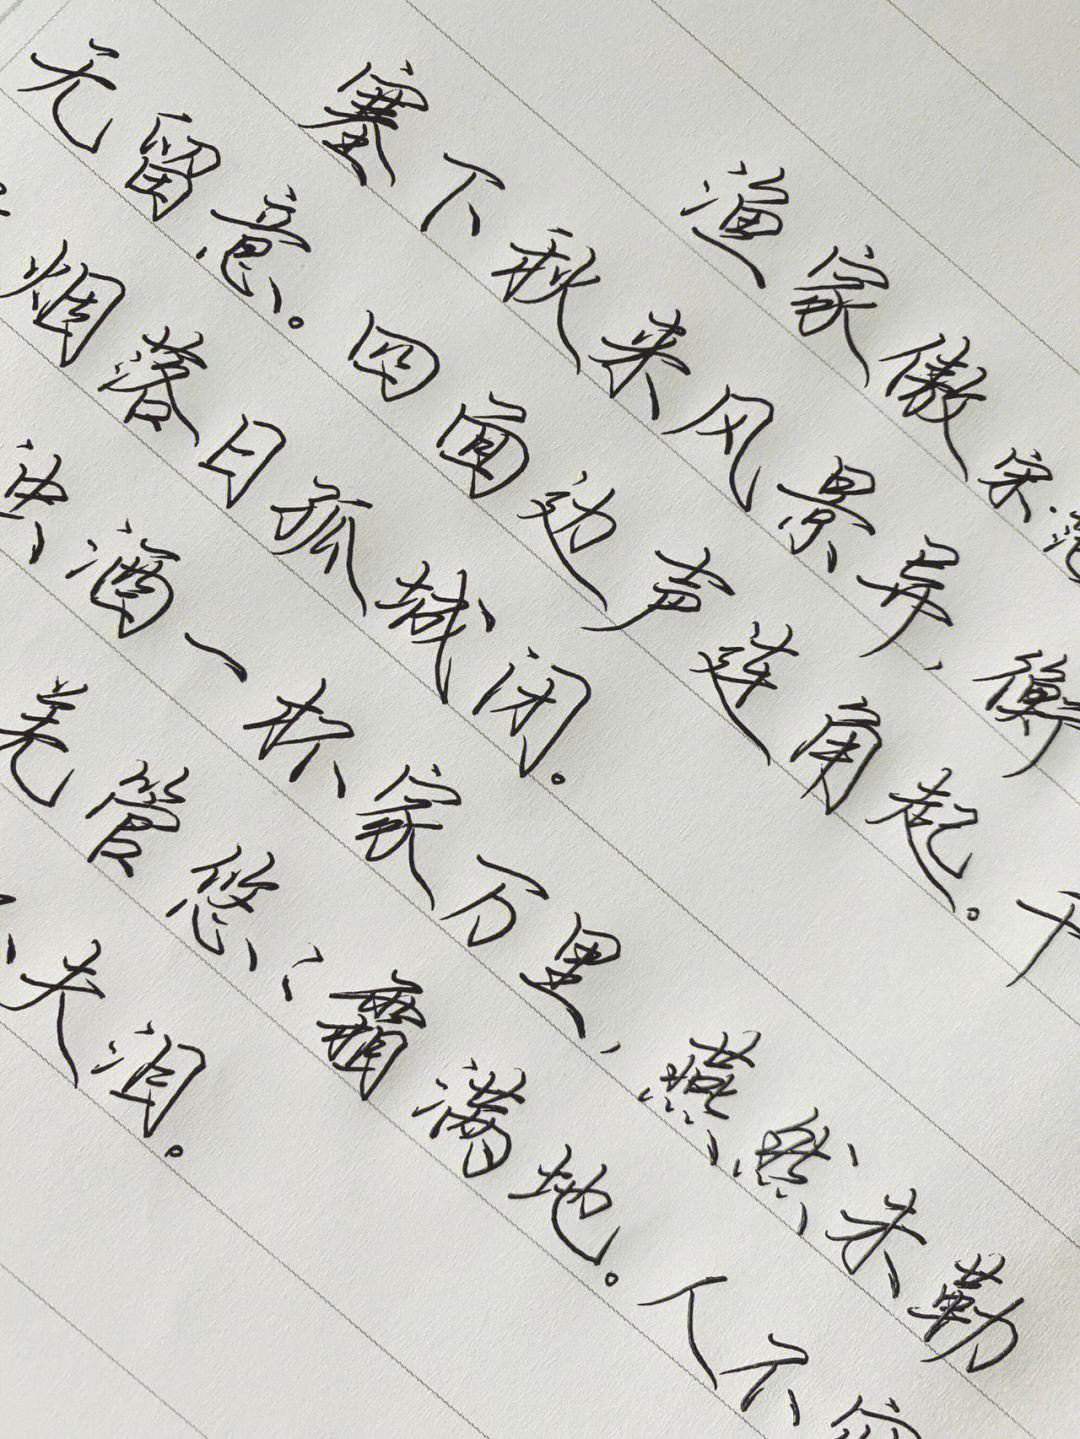 渔家傲 宋·范
塞下秋来风景异,衡
无留意。四面边声连角起。千
烟落日孤城闭。
浊酒一杯家万里,燕然未勒
羌管悠、、霜满地。人不寐
夫泪。